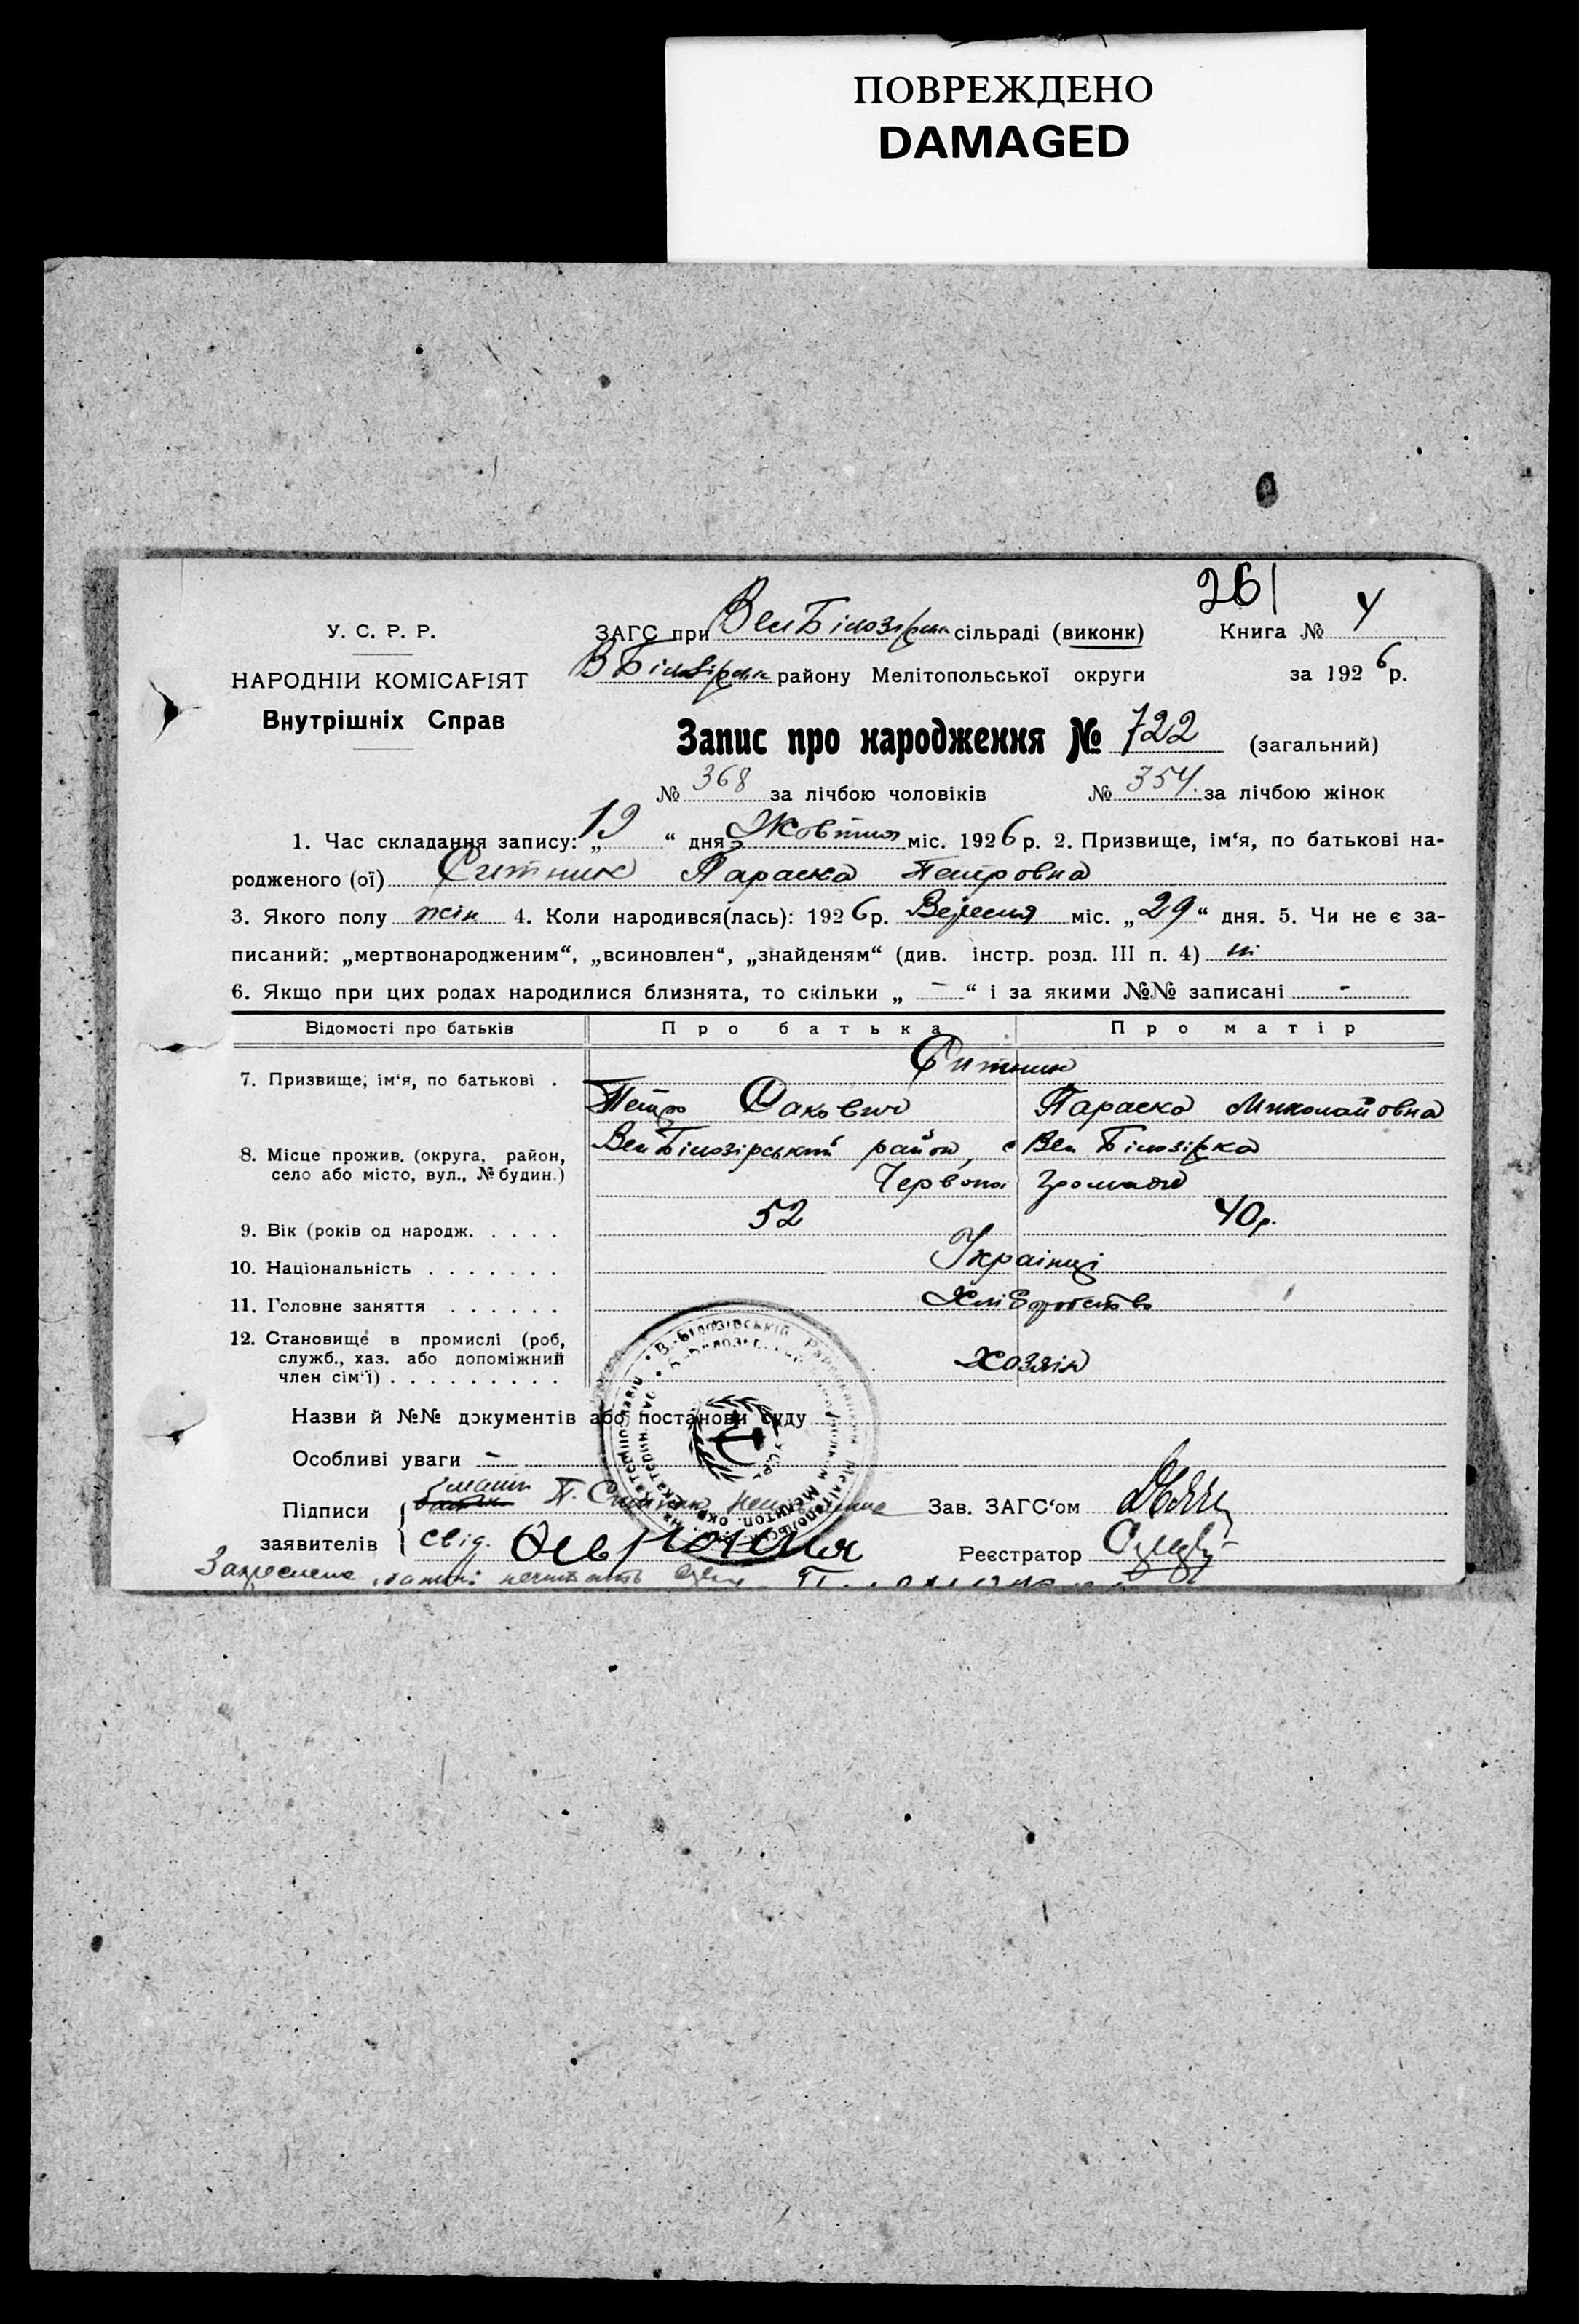 ПОВРЕЖДЕНО
DAMAGED
261
У. С. Р. Р.
ЗАГС при ВелБілозірськ сільраді (виконк) Книга № 4
НАРОДНІЙ КОМІСАРІЯТ
ВБілозірськ району Мелітопольської округи за 1926 р.
Внутрішніх Справ
Запис про народження № 722 (загальний)
№ 368 за лічбою чоловіків № 354. за лічбою жінок
1. Час складання запису: „19“ дня Жовтня міс. 1926 р. 2. Призвище, ім‘я, по батькові на-
родженого (ої) Ситник Параска Петровна
3. Якого полу жін 4. Коли народився(лась): 1926 р. Вересня міс. „29“ дня. 5. Чи не є за-
писаний: „мертвонародженим“, „всиновлен“, „знайденям“ (див. інстр. розд. III п. 4) ні
6. Якщо при цих родах народилися близнята, то скільки „ - “ і за якими №№ записані -
Відомості про батьків Про батька Про матір
7. Призвище, ім‘я, по батькові . Ситник
Петро Сакович Параска Миколайовна
8. Місце прожив. (округа, район, село або місто, вул., № будин.) ВелБілозірський район, с Вел Білозірка
Червона Громада
9. Вік (років од народж. . . . . 52 40 р.
10. Національність . . . . . . . Українці
11. Головне заняття . . . . . . Хліборобство
12. Становище в промислі (роб,
служб., хаз. або допоміжний
член сім‘ї) . . . . . . . . . Хазяїн
Назви й №№ документів або постанови суду
Особливі уваги -
мати
Підписи П. Ситник Зав. ЗАГС‘ом
заявителів свід. Реєстратор